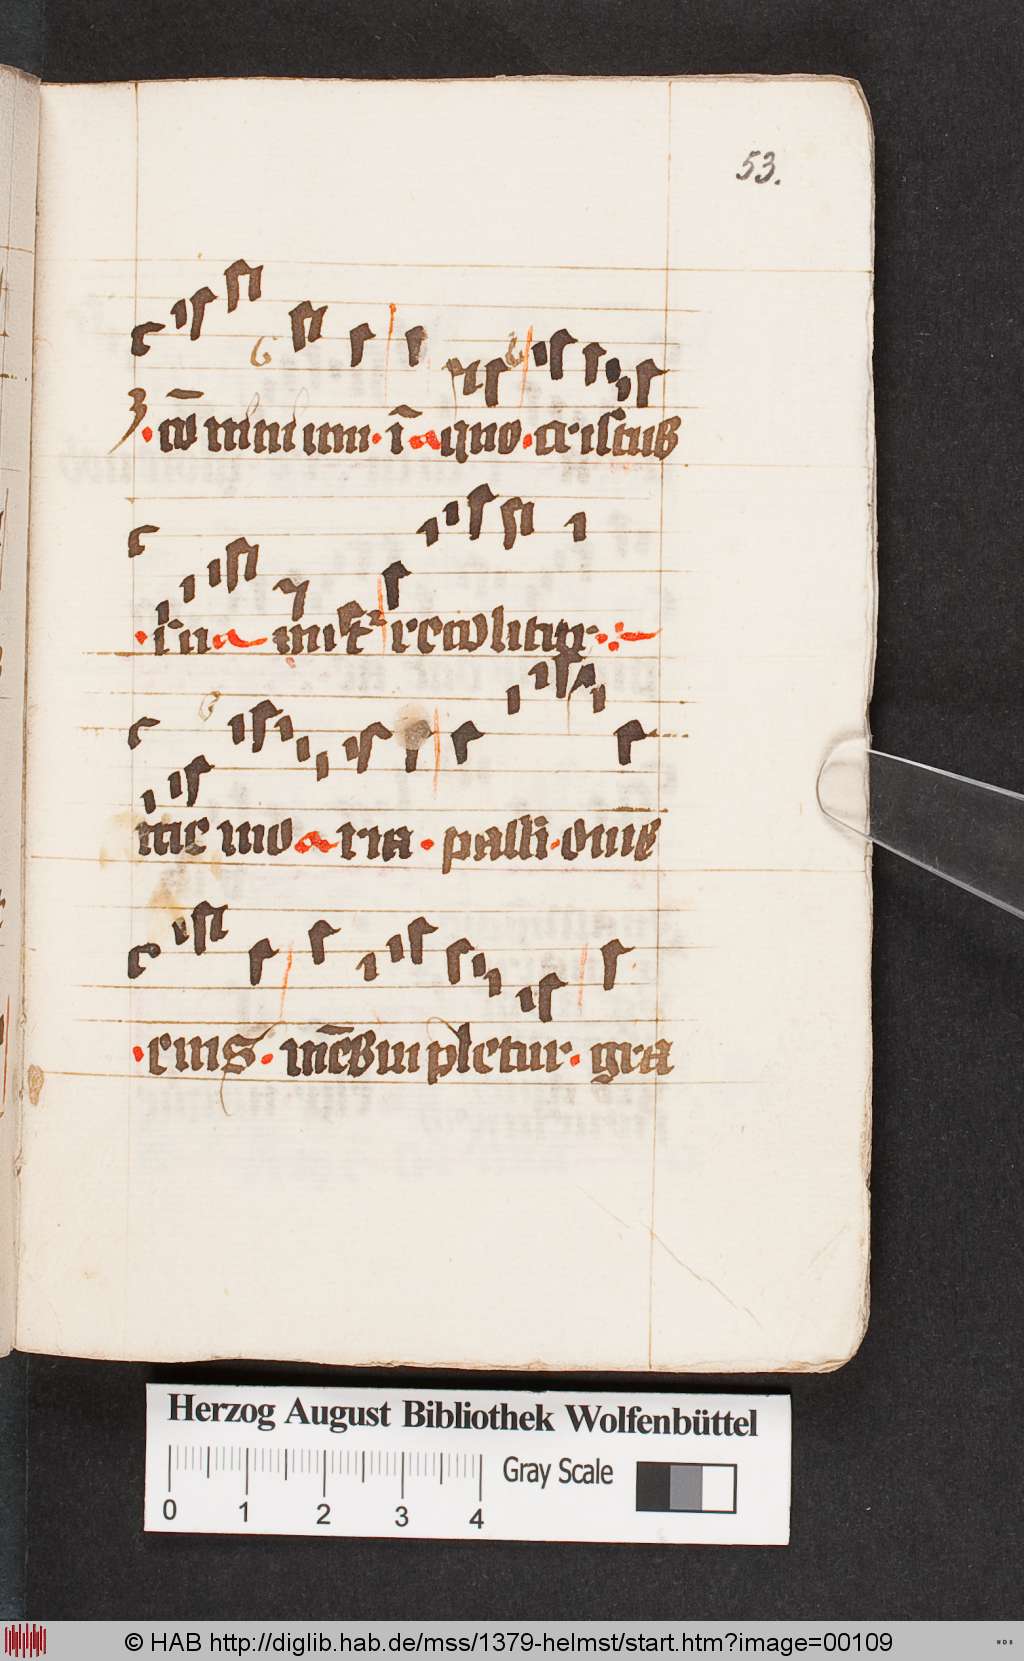 53.
ꝫ · cō niui um · ī quo · cristus
· su mit² recolitur
me mo ria · passi onis
· eius · mēs impletur · gra
Herzog August Bibliothek Wolfenbüttel
Gray Scale
0 1 2 3 4
© HAB http://diglib.hab.de/mss/1379-helmst/start.htm?image=00109